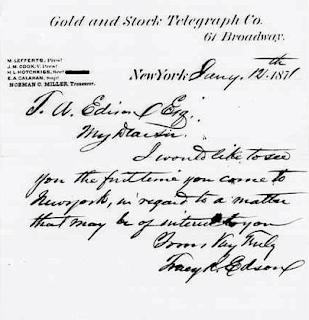 Gold and Stock Telegraph Co.
61 Broadway.
M. LEFFERTS, Pres't
J. M. COOK, V. Pres't
H. L. HOTCHKISS, Sec'y
E. A. CALAHAN, Supt
NORMAN C. MILLER, Treasurer.
New York Jany. 12th 1871
T. A. Edison Esq.
My Dear Sir.
I would like to see
you the first time you come to
Newyork, in regard to a matter
that may be of interest to you
Yours, Very Truly
Tracy R. Edson